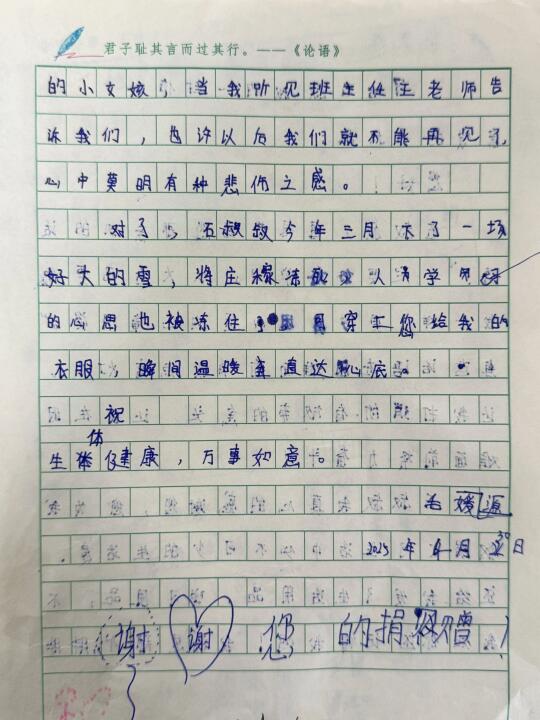 君子耻其言而过其行。——《论语》
的小女孩，当我听见班主任汪老师告
诉我们，也许以后我们就不能再见了，
心中莫明有种悲伤之感。
对了，石叔叔今年三月下了一场
好大的雪，将庄稼冻 人们学
的心思也被冻住 穿上您给我的
衣服，瞬间温暖直达心底。
祝
生体健康，万事如意。
毛媛源
2025年4月30日
谢谢您的捐赠！